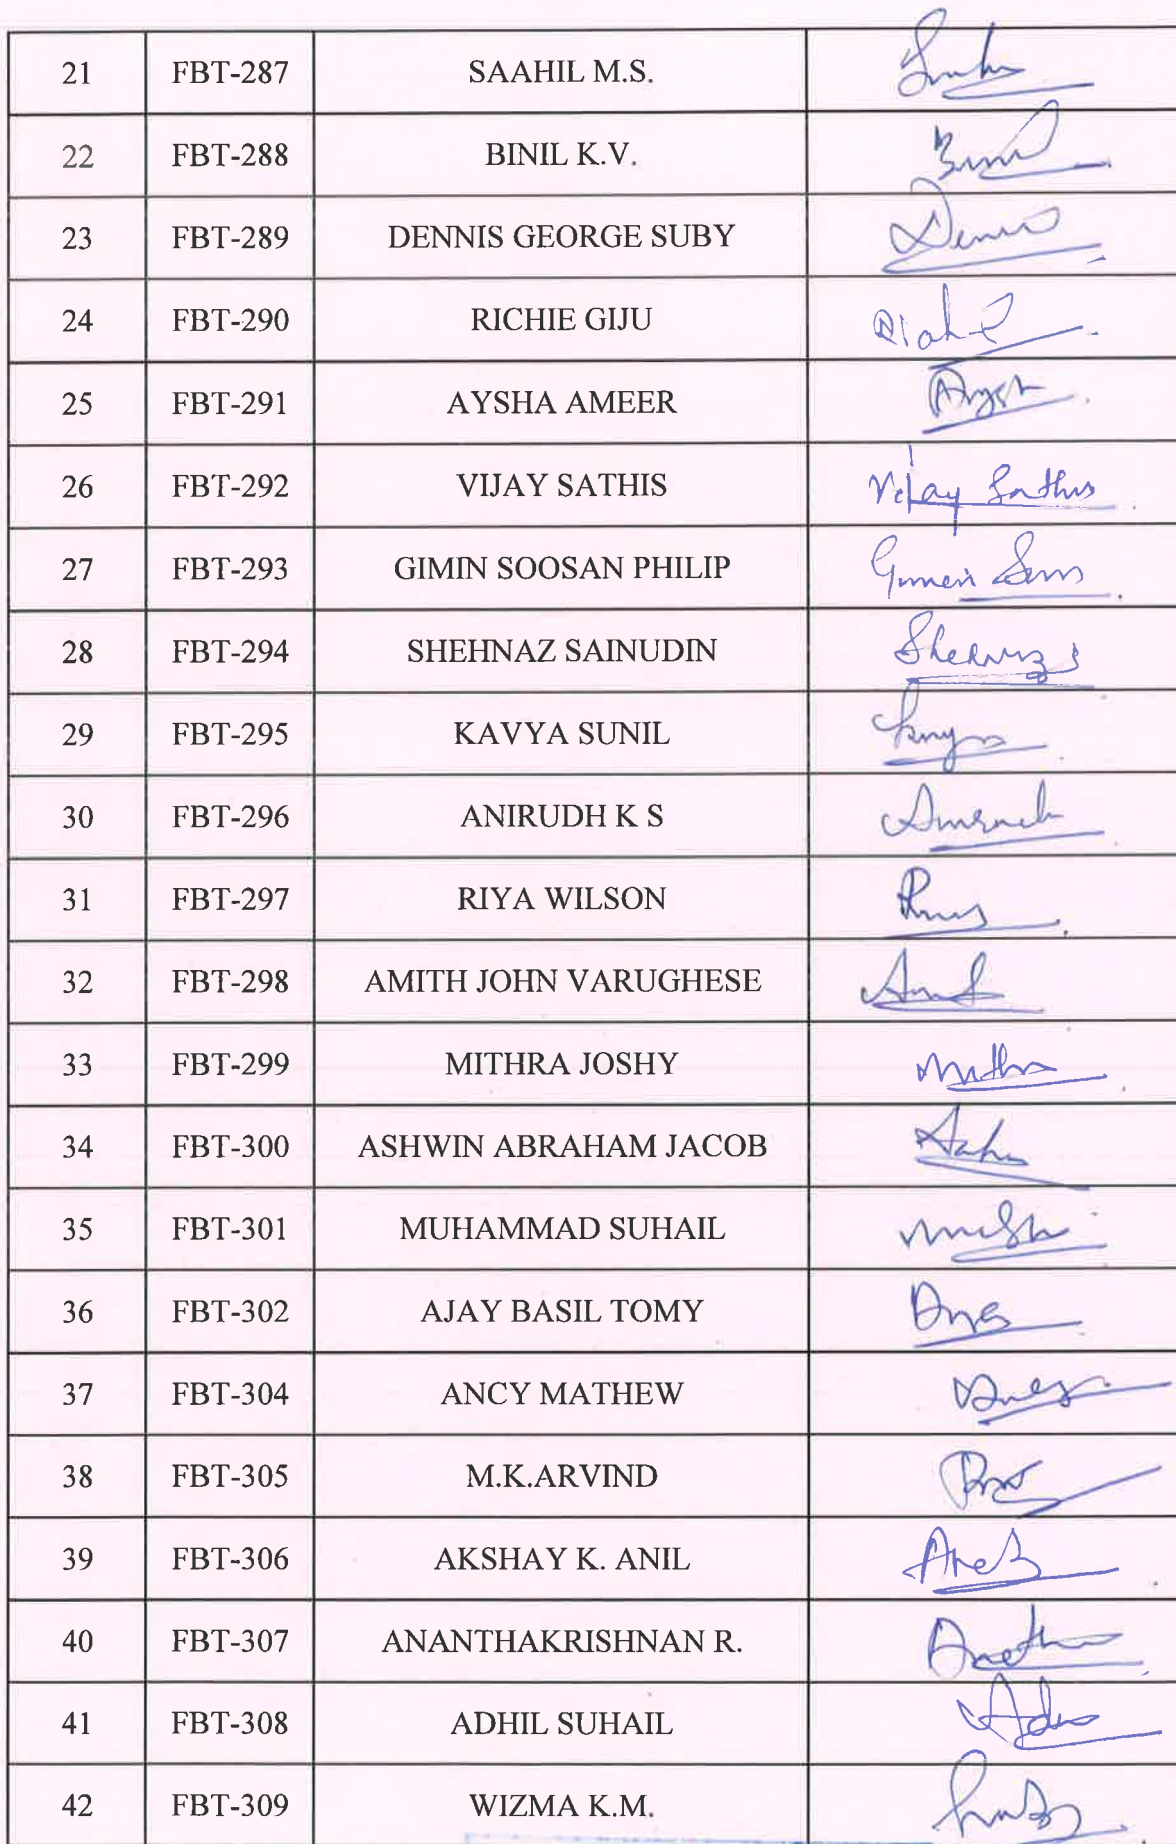 21 FBT-287 SAAHIL M.S.
22 FBT-288 BINIL K.V.
23 FBT-289 DENNIS GEORGE SUBY Dennis
24 FBT-290 RICHIE GIJU
25 FBT-291 AYSHA AMEER
26 FBT-292 VIJAY SATHIS Vijay Sathis
27 FBT-293 GIMIN SOOSAN PHILIP
28 FBT-294 SHEHNAZ SAINUDIN
29 FBT-295 KAVYA SUNIL
30 FBT-296 ANIRUDH K S
31 FBT-297 RIYA WILSON
32 FBT-298 AMITH JOHN VARUGHESE
33 FBT-299 MITHRA JOSHY
34 FBT-300 ASHWIN ABRAHAM JACOB
35 FBT-301 MUHAMMAD SUHAIL
36 FBT-302 AJAY BASIL TOMY
37 FBT-304 ANCY MATHEW
38 FBT-305 M.K.ARVIND
39 FBT-306 AKSHAY K. ANIL
40 FBT-307 ANANTHAKRISHNAN R.
41 FBT-308 ADHIL SUHAIL
42 FBT-309 WIZMA K.M.